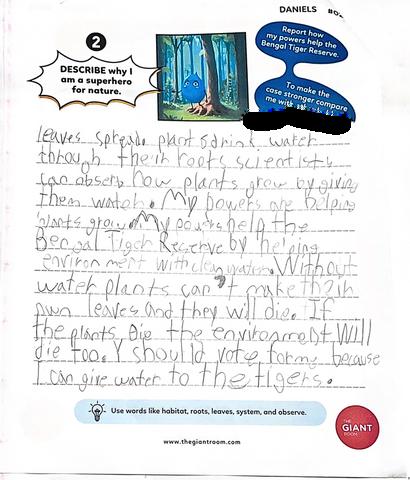 DANIELS
2
DESCRIBE why I
am a superhero
for nature.
Report how
my powers help the
Bengal Tiger Reserve.
To make the
case stronger compare
me with
leaves spread. plants drink water
through their roots scientists
can observ how plants grow by giving
them water. My powers are helping
plants grow. My powers help the
Bengal Tiger Reserve by helping
environment with clean water. Without
water plants can't make their
own leaves and they will die. If
the plants die the environment Will
die too. Y should vote for me because
I can give water to the tigers.
Use words like habitat, roots, leaves, system, and observe.
www.thegiantroom.com
THE
GIANT
ROOM